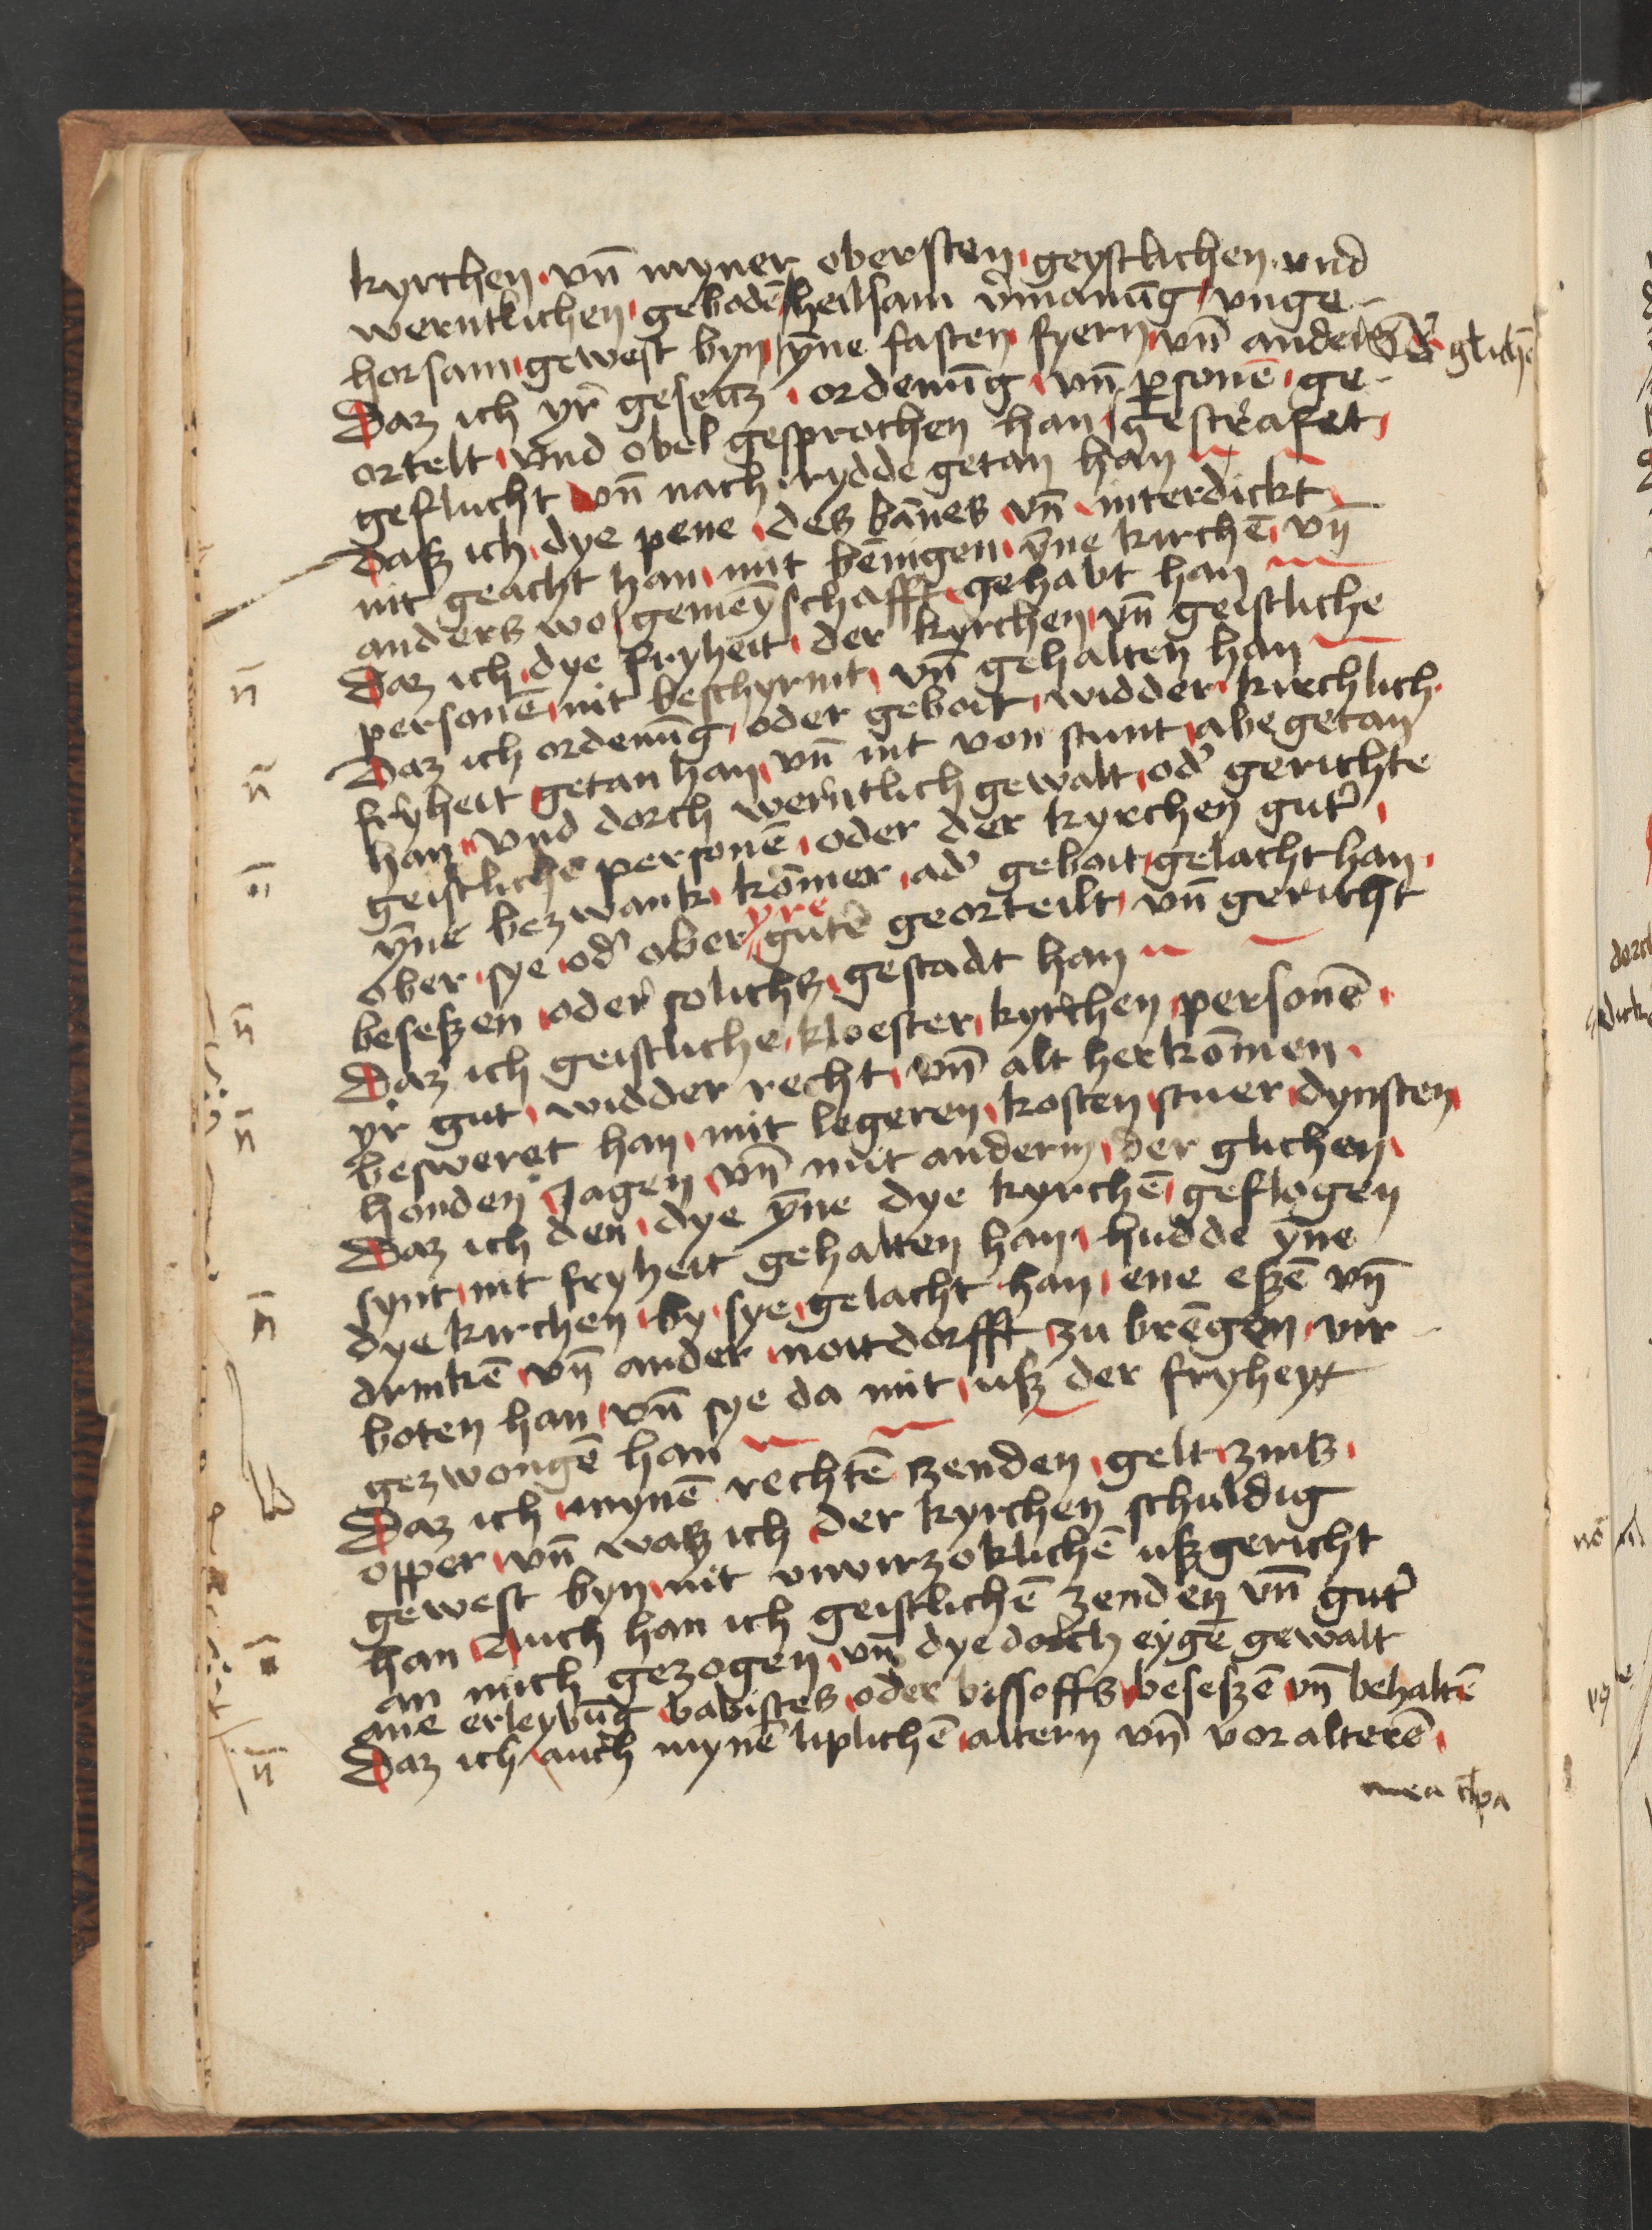 kyrchen vn̄ myner obersten geystlichen vnd
werntlichen gebodē heilsam v̓manūg vnge-
horsam gewest byn yn̄e fasten fyern vn̄ ander d̓ glichē
Daz ich yr̓ gesetz ordenūg vn̄ ꝑsonē ge-
ortelt vnd obel gesprochen han gestrafet
geflucht vn̄ nach rydde getan han
Daß ich dye pene des bānes vn̄ interdickt
nit geacht han mit bēnigen yn̄e kirchē vn̄
anders wo gemeȳschafft gehabt han
Daz ich dye fryheit der kyrchen vn̄ geistliche
personē nit beschyrmt vn̄ gehalten han
Daz ich ordenūg oder geboit widder kirchlich
fryheit getan han vn̄ nit von stunt abegetan
han vnd dorch werntlich gewalt od̓ gerichte
geistliche personē oder der kyrchen gut̓
yn̄e bezwank kōmer ad̓ geboit gelacht han
ober sye od̓ ober yre gut̓e georteilt vn̄ gericht
beseßen oder solichs gestadt han
Daz ich geistliche kloester kyrchen personē
yr gut widder recht vn̄ alt herkōmen
besweret han mit legeren kosten stuer dynsten
honden Jagen vn̄ mit anderm der glichen
Daz ich den dye yn̄e dye kyrchē geflogen
synt nit fryheit gehalten han hudde yn̄e
dye kirchen by sye gelacht han ene eßē vn̄
drinkē vn̄ ander noitdorfft zu brēgen vir-
boten han vn̄ sye da mit uß der fryheyt
gezwongē han
Daz ich mynē rechtē zenden gelt zinß
opper vn̄ waß ich der kyrchen schuldig
gewest byn nit vnvirzoklichē ußgericht
han Auch han ich geistlichē zenden vn̄ gut̓
an mich gezogen vn̄ dye dorch eygē gewalt
ane erleybūg babistes oder bissoffs beseßē vn̄ behaltē
Daz ich auch mynē liplichē altern vn̄ voralterē
mea cl̄pa